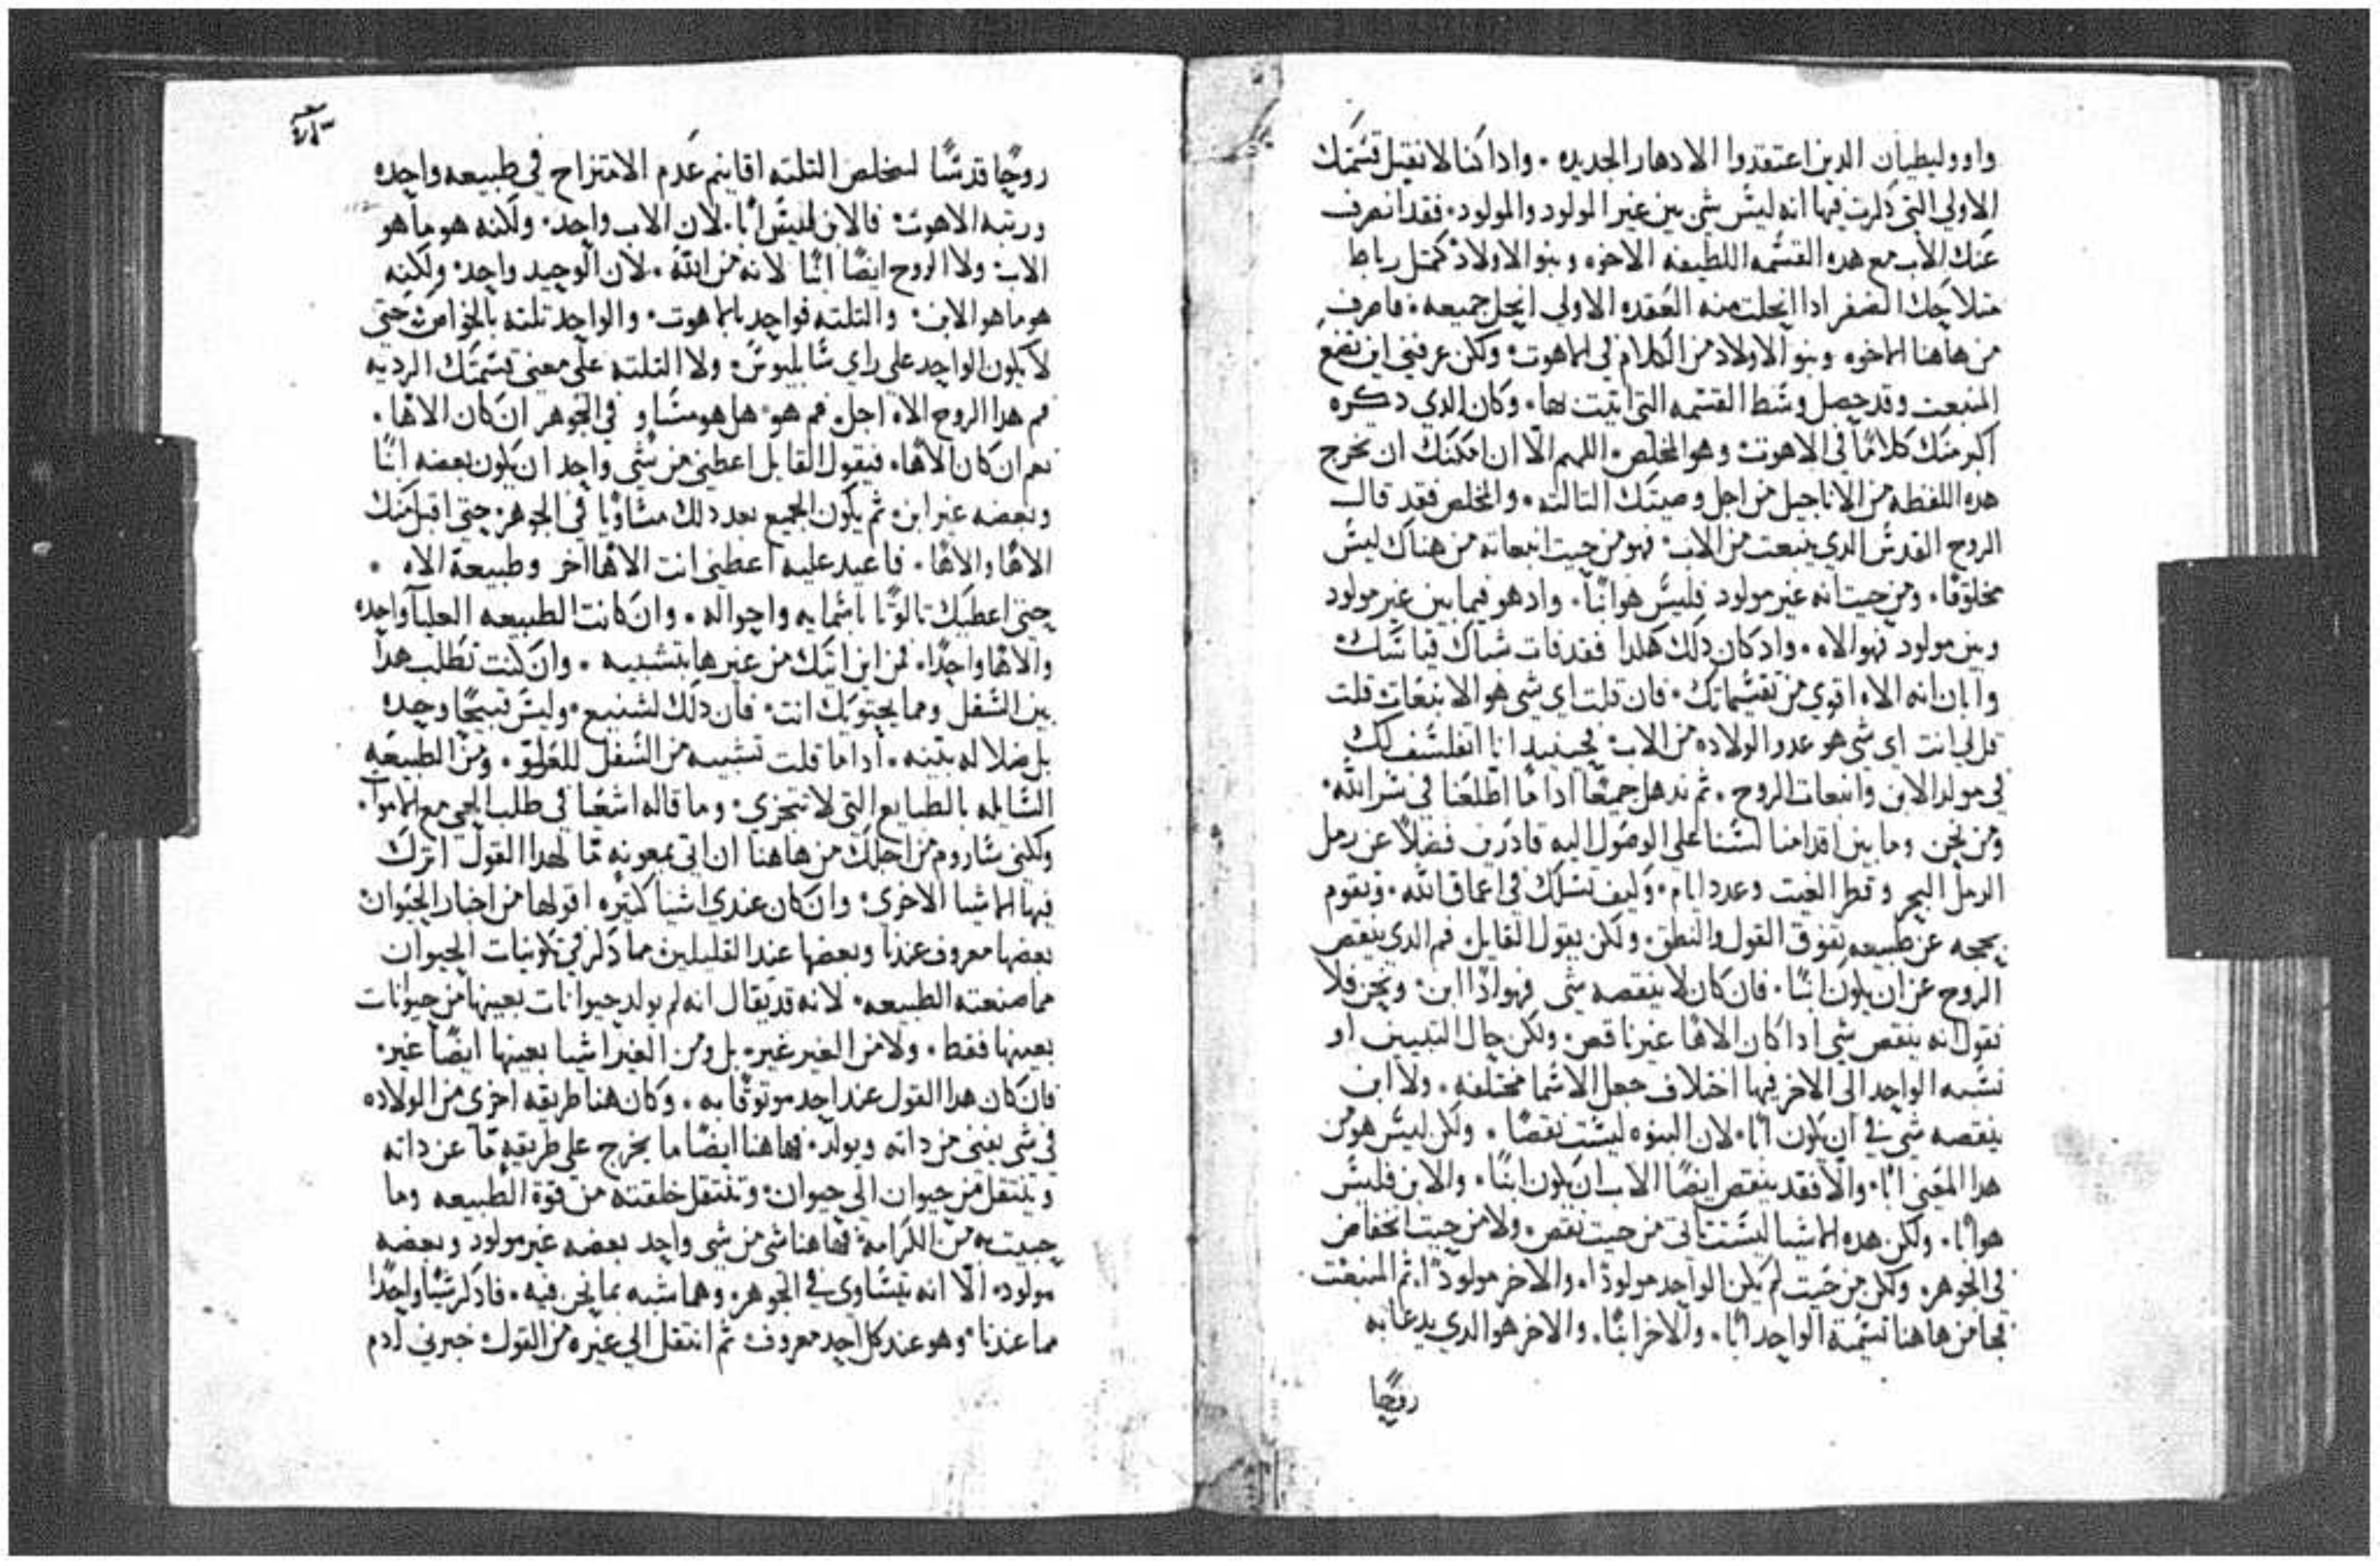 واوولنطيان الدين اعتقدوا الادهار الجديده . وادا كنا لا نقبل قسمتك
الاولي التي دكرت فيها انه ليس شي بين غير المولود والمولود . فقد انصرف
عنك الاب مع هده القسمه اللطيفه الاخوه وبنو الاولاد كمثل رباط
متلاحك الضفر ادا انحلت منه العقده الاولي انحل جميعه . فاصرف
من هاهنا الاخوه وبنو الاولاد من الكلام في الاهوت . ولكن عرفني اين تضع
المنبعت وقد حصل وسط القسمه التي اتيت بها . وكان الدي دكره
اكبر منك كلامًا في الاهوت وهو المخلص . اللهم الّا ان امكنك ان تخرج
هده اللفظه من الاناجيل من اجل وصيتك التالته . والمخلص فقد قال
الروح القدس الدي ينبعت من الاب . فهو من حيت انبعاته من هناك ليس
مخلوقًا . ومن حيت انه غير مولود فليس هو ابنًا . واد هو فيما بين غير مولود
وبين مولود فهو الاه . واد كان دلك هكدا فقد فات شباك قياسك
وابان انه الاه اقوي من تقسيماتك . فان قلت اي شي هو الانبعات قلت
قل لي انت اي شي هو عدو الولاده من الاب فحينيد انا اتفلسف لك
في مولد الابن وانبعات الروح . ثم ندهل جميعًا ادا ما اطلعنا في سر الله .
ومن نحن وما بين اقدامنا لسنا علي الوصول اليه قادرين فضلًا عن رمل
الرمل البحر وقطر الغيت وعدد ايام . وكيف نسلك في اعماق الله . ونقوم
بحجه عن طبيعه تفوق القول والنطق . ولكن يقول القايل فم الدي ينقص
الروح عن ان يكون ابنًا . فان كان لا ينقصه شي فهو ادًا ابن . ونحن فلا
نقول انه ينقص شي ادا كان الاهًا غير ناقص . ولكن حال التبيين او
نسبه الواحد الي الاخر فيها اختلاف جعل الاسما مختلفه . ولا ابن
ينقصه شي في ان يكون ابًا . لان البنوه ليست نقصًا . ولكن ليس هو من
هدا المعني ابًا . والّا فقد ينقص ايضًا الاب ان يكون ابنًا . والابن فليس
هو ابًا . ولكن هده الاشيا ليست تاتي من حيت نقص . ولا من حيت انخفاض
في الجوهر . ولكن من حيت لم يكن الواحد مولودًا . والاخر مولودًا . ثم المنبعت
فجا من هاهنا تسمية الواحد ابًا . والاخر ابنًا . والاخر هو الدي يدعا به
روحًا
روحًا قدسًا لتخلص التلته اقانيم عدم الامتزاج في طبيعه واحده
ورتبه الاهوت . فالابن ليس ابًا . لان الاب واحد . ولكنه هو ما هو
الاب . ولا الروح ايضًا ابنًا لانه من الله . لان الوحيد واحد . ولكنه
هو ما هو الابن . والتلته فواحد بالاهوت . والواحد تلته بالخواص حتي
لا يكون الواحد علي راي سابليوس . ولا التلته علي معني قسمتك الرديه
فم هدا الروح الاه اجل . فم هو . هل هو مساو في الجوهر ان كان الاهًا .
نعم ان كان الاهًا . فيقول القايل اعطني من شي واحد ان يكون بعضه ابنًا
وبعضه غير ابن . ثم يكون الجميع بعد دلك مساويًا في الجوهر . حتي اقبل منك
الاهًا والاهًا . فاعيد عليه اعطني انت الاهًا اخر وطبيعة الاه .
حتي اعطيك تالوتًا باسمايه واحواله . وان كانت الطبيعه العليا واحده
والاهًا واحدًا . فمن اين اتيك من غيرها بتشبيه . وان كنت تطلب هدا
بين السفل ومما يحتويك انت . فان دلك لشنيع . وليس قبيحًا وحده
بل ضلاله بتينه . ادا ما قلت تشبيه من السفل للعلو . ومن الطبيعه
السايله بالطبايع التي لا تتحزي . وما قاله اشعيا في طلب الحي مع الاموات .
ولكني ساروم من اجلك من هاهنا ان اتي بمعونه مّا لهدا القول اترك
فيها الاشيا الاخري . وان كان عندي اشيا كتيره اقولها من اخبار الحيوان
بعضها معروف عندنا وبعضها عند القليلين مما دكر في تكوينات الحيوان
مما صنعته الطبيعه . لانه قد يقال انه لم يولد حيوانات بعينها من حيوانات
بعينها فقط . ولا من الغير غير . بل ومن الغير اشيا بعينها ايضًا غير .
فان كان هدا القول عند احد موتوقًا به . وكان هنا طريقه اخري من الولاده
في شي يفني من داته ويولد . فهاهنا ايضًا ما يخرج علي طريقه مّا عن داته
وينتقل من حيوان الي حيوان . وتنتقل خلقته من قوة الطبيعه وما
حبيت به من الكرامه فهاهنا شي من شي واحد بعضه غير مولود وبعضه
مولود . الّا انه يتساوي في الجوهر . وهما شبه بما نحن فيه . فادكر شيًا واحدًا
مما عندنا وهو عند كل احد معروف ثم انتقل الي غيره من القول . خبرني ادم